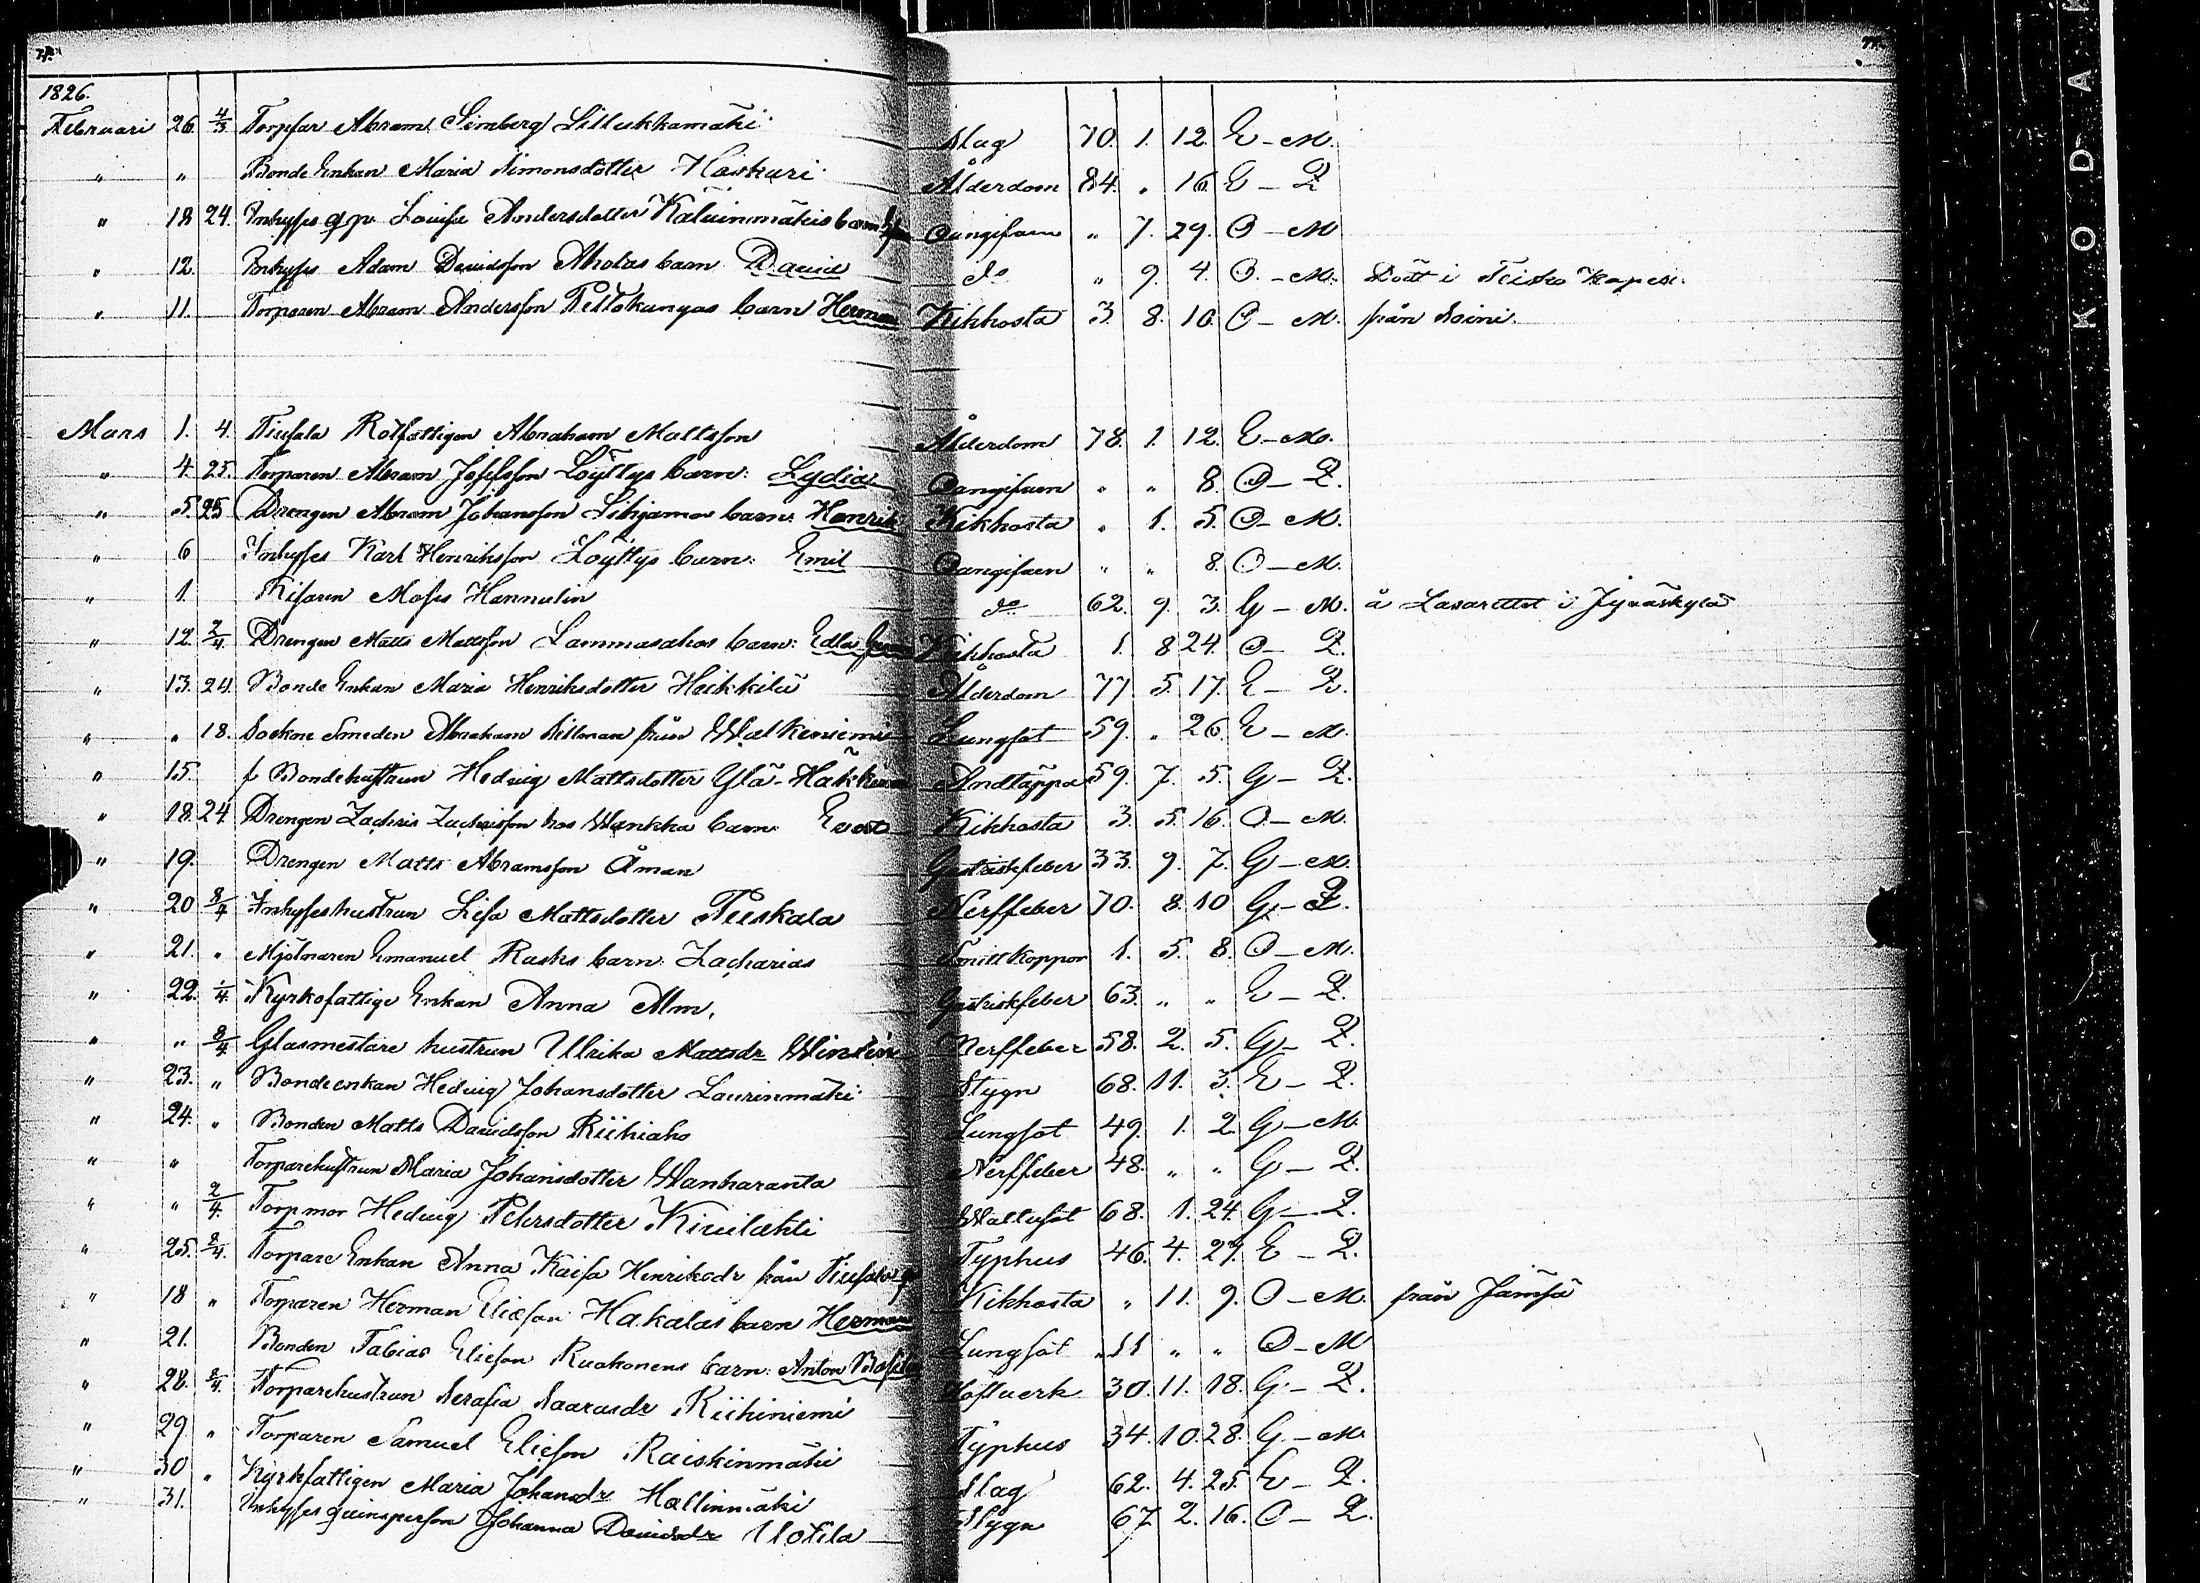 1826.
Februari 26. 4/3 Torpfar Abram Simberg Lillukkamäki Slag 70. 1. 12. E - M.
" " Bonde Enkan Maria Simonsdotter Haskari Ålderdom 84. " 16. E - Q
" 18 24. Inhyses qp Lovisa Andersdotter Kaluinmäkis barn Oangifven " 7. 29. O - M
" 12. Inhyses Adam Davidsson Aholas barn David do " 9. 4. O. - M. Dödt i Teisko Kapell.
" 11. Torparen Abram Andersson Peltokangas barn Herman Kikhosta 3. 8. 10. O - M. från Soini.
Mars 1. 4. Tiusala Rotfattigen Abraham Mattsson Ålderdom 78. 1. 12. E - M.
" 4. 25. Torparen Abram Josefsson Löyttys barn: Lydia Oangifven " " 8. O - Q.
" 5. 25 Drengen Abram Johansson Lihjamo barn: Henrik Kikhosta " 1. 5. O - M.
" 6 Inhyses Karl Henriksson Löyttys barn: Emil Oangifven " " 8. O - M.
" 1. Moses Hannulin do 62. 9. 3. G - M. å Lasarettet i Jyväskylä
" 12. 2/4 Drengen Matts Mattsson Lammasahos barn: Edla Kikhosta 1. 8 24. O - Q.
" 13. 24. Bonde Enkan Maria Henriksdotter Heikkilä Ålderdom 77. 5. 17. E - Q.
" " 18. Sockne Smeden Abraham Hellman från Walkeniemi Lungsot 59. " 26. E - M.
" 15. f Bondehustrun Hedvig Mattsdotter Ylä-Häkkinen Andtäppa 59. 7. 5. G - Q.
" 18. 24. Drengen Zachris Zachrisson hos Wankka barn Evert Kikhosta 3. 5. 16. O - M.
" 19. Drengen Matts Abramsson Åman Gastriskfeber 33. 9. 7. G - M.
" 20 8/4 Inhyseshustrun Lisa Mattsdotter Piiskala Nerffeber 70. 8. 10 G - Q.
" 21. " Mjölnaren Emanuel Rasks barn: Zacharias Smittkoppor 1. 5. 8. O - M.
" 22. 1/4. Kyrkofattige Enkan Anna Alm, Gastriskfeber 63. " " E - Q.
" " 8/4 Glasmestare hustrun Ulrika Mattsdr Winsten Nerffeber 58. 2. 5. G - Q.
" 23. " Bondeenkan Hedvig Johansdotter Laurinmäki Stygn 68. 11. 3. E - Q.
" 24. " Bonden Matts Davidsson Riihiaho Lungsot 49. 1. 2. G - M.
" " Torparehustrun Maria Johansdotter Wanharanta Nerffeber 48. " " G - Q.
" " 2/4. Torpmor Hedvig Petersdotter Kivilahti Wattusot 68. 1. 24. G - Q.
" 25. 8/4. Torpare Enkan Anna Kaisa Henriksdr från Tiusala Typhus 46. 4. 27. E - Q.
" 18 " Torparen Herman Eliesson Hakalas barn Herman Kikhosta " 11. 9. O - M. från Jämsä
" 21. Bonden Tobias Eliesson Ruahonens barn: Anton Lungsot " 11 " " O - M
" 28. 8/4. Torparehustrun Serafia Saarasdr Riihiniemi Höftverk 30. 11. 18. G - Q.
" 29. " Torparen Samuel Eliesson Raiskinmäki Typhus 34. 10. 28. G - M.
" 30 " Kyrkfattigen Maria Johansdr Hallinmäki Slag 62. 4. 25. E - Q.
" 31. Inhyses qvinsperson Johanna Davidsdr Uotila Stygn 67. 2. 16. O - Q.
KODAK